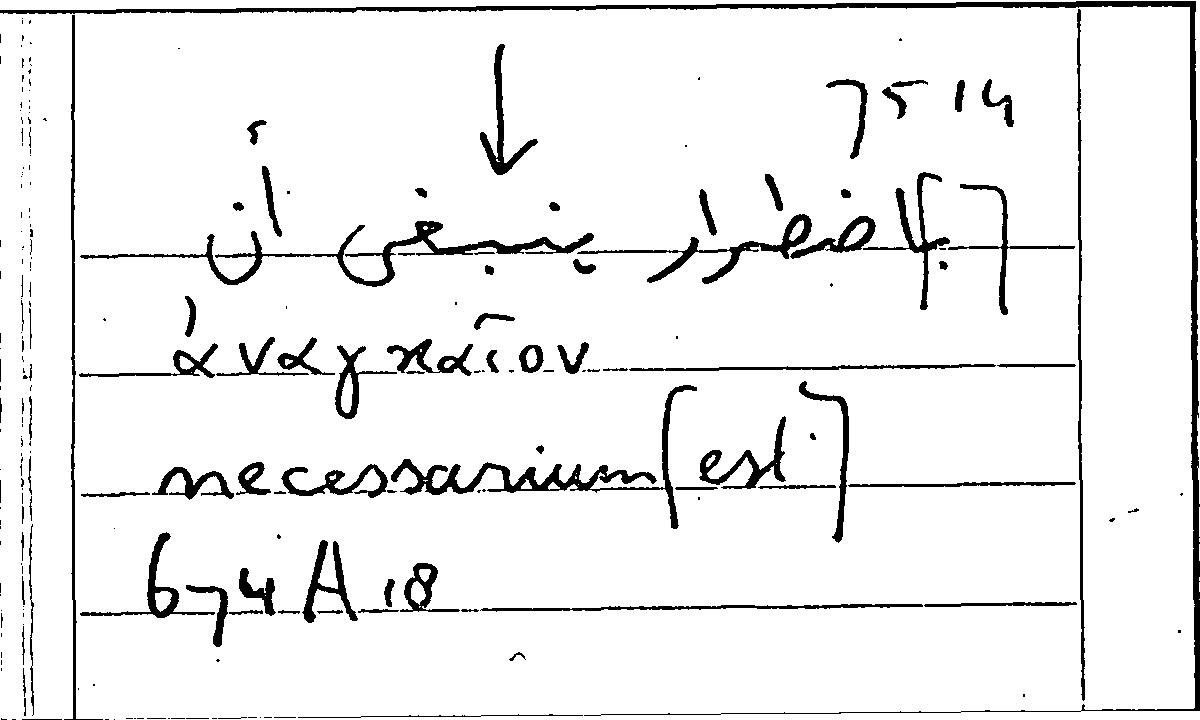 75 14
[ب]اضطرار ينبغى أن
ἀναγκαῖον
necessarium [est]
674 A 18